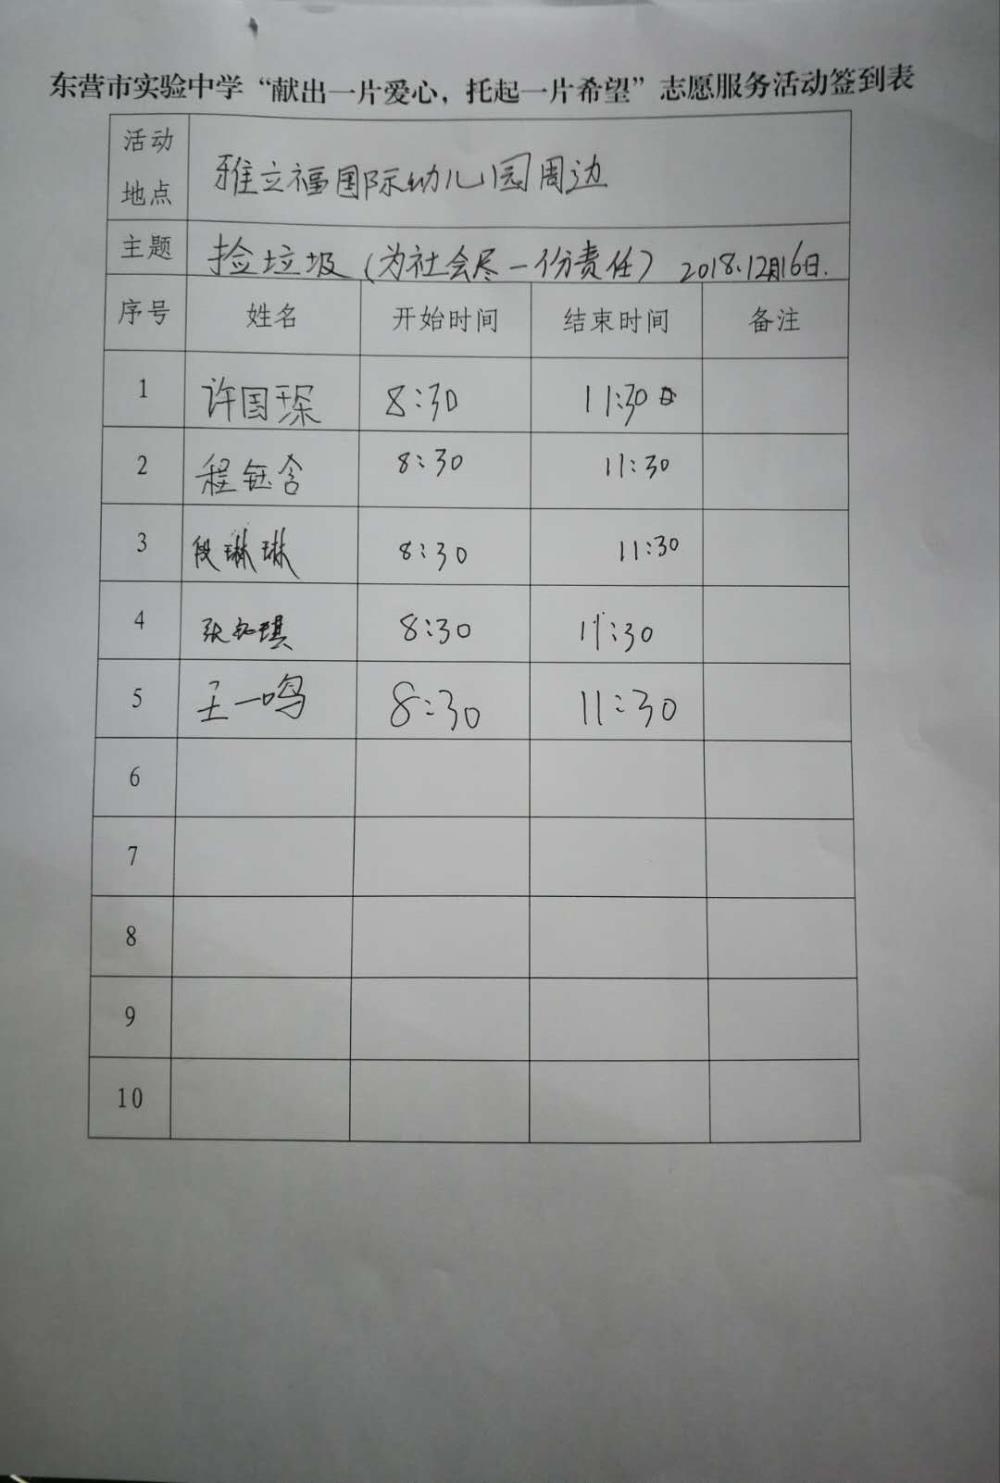 东营市实验中学“献出一片爱心，托起一片希望”志愿服务活动签到表
活动
地点
雅立福国际幼儿园周边
主题 捡垃圾（为社会尽一份责任） 2018.12月16日.
序号 姓名 开始时间 结束时间 备注
1 许国琛 8:30 11:30
2 程钰含 8:30 11:30
3 段琳琳 8:30 11:30
4 张 琪 8:30 11:30
5 王一鸣 8:30 11:30
6
7
8
9
10